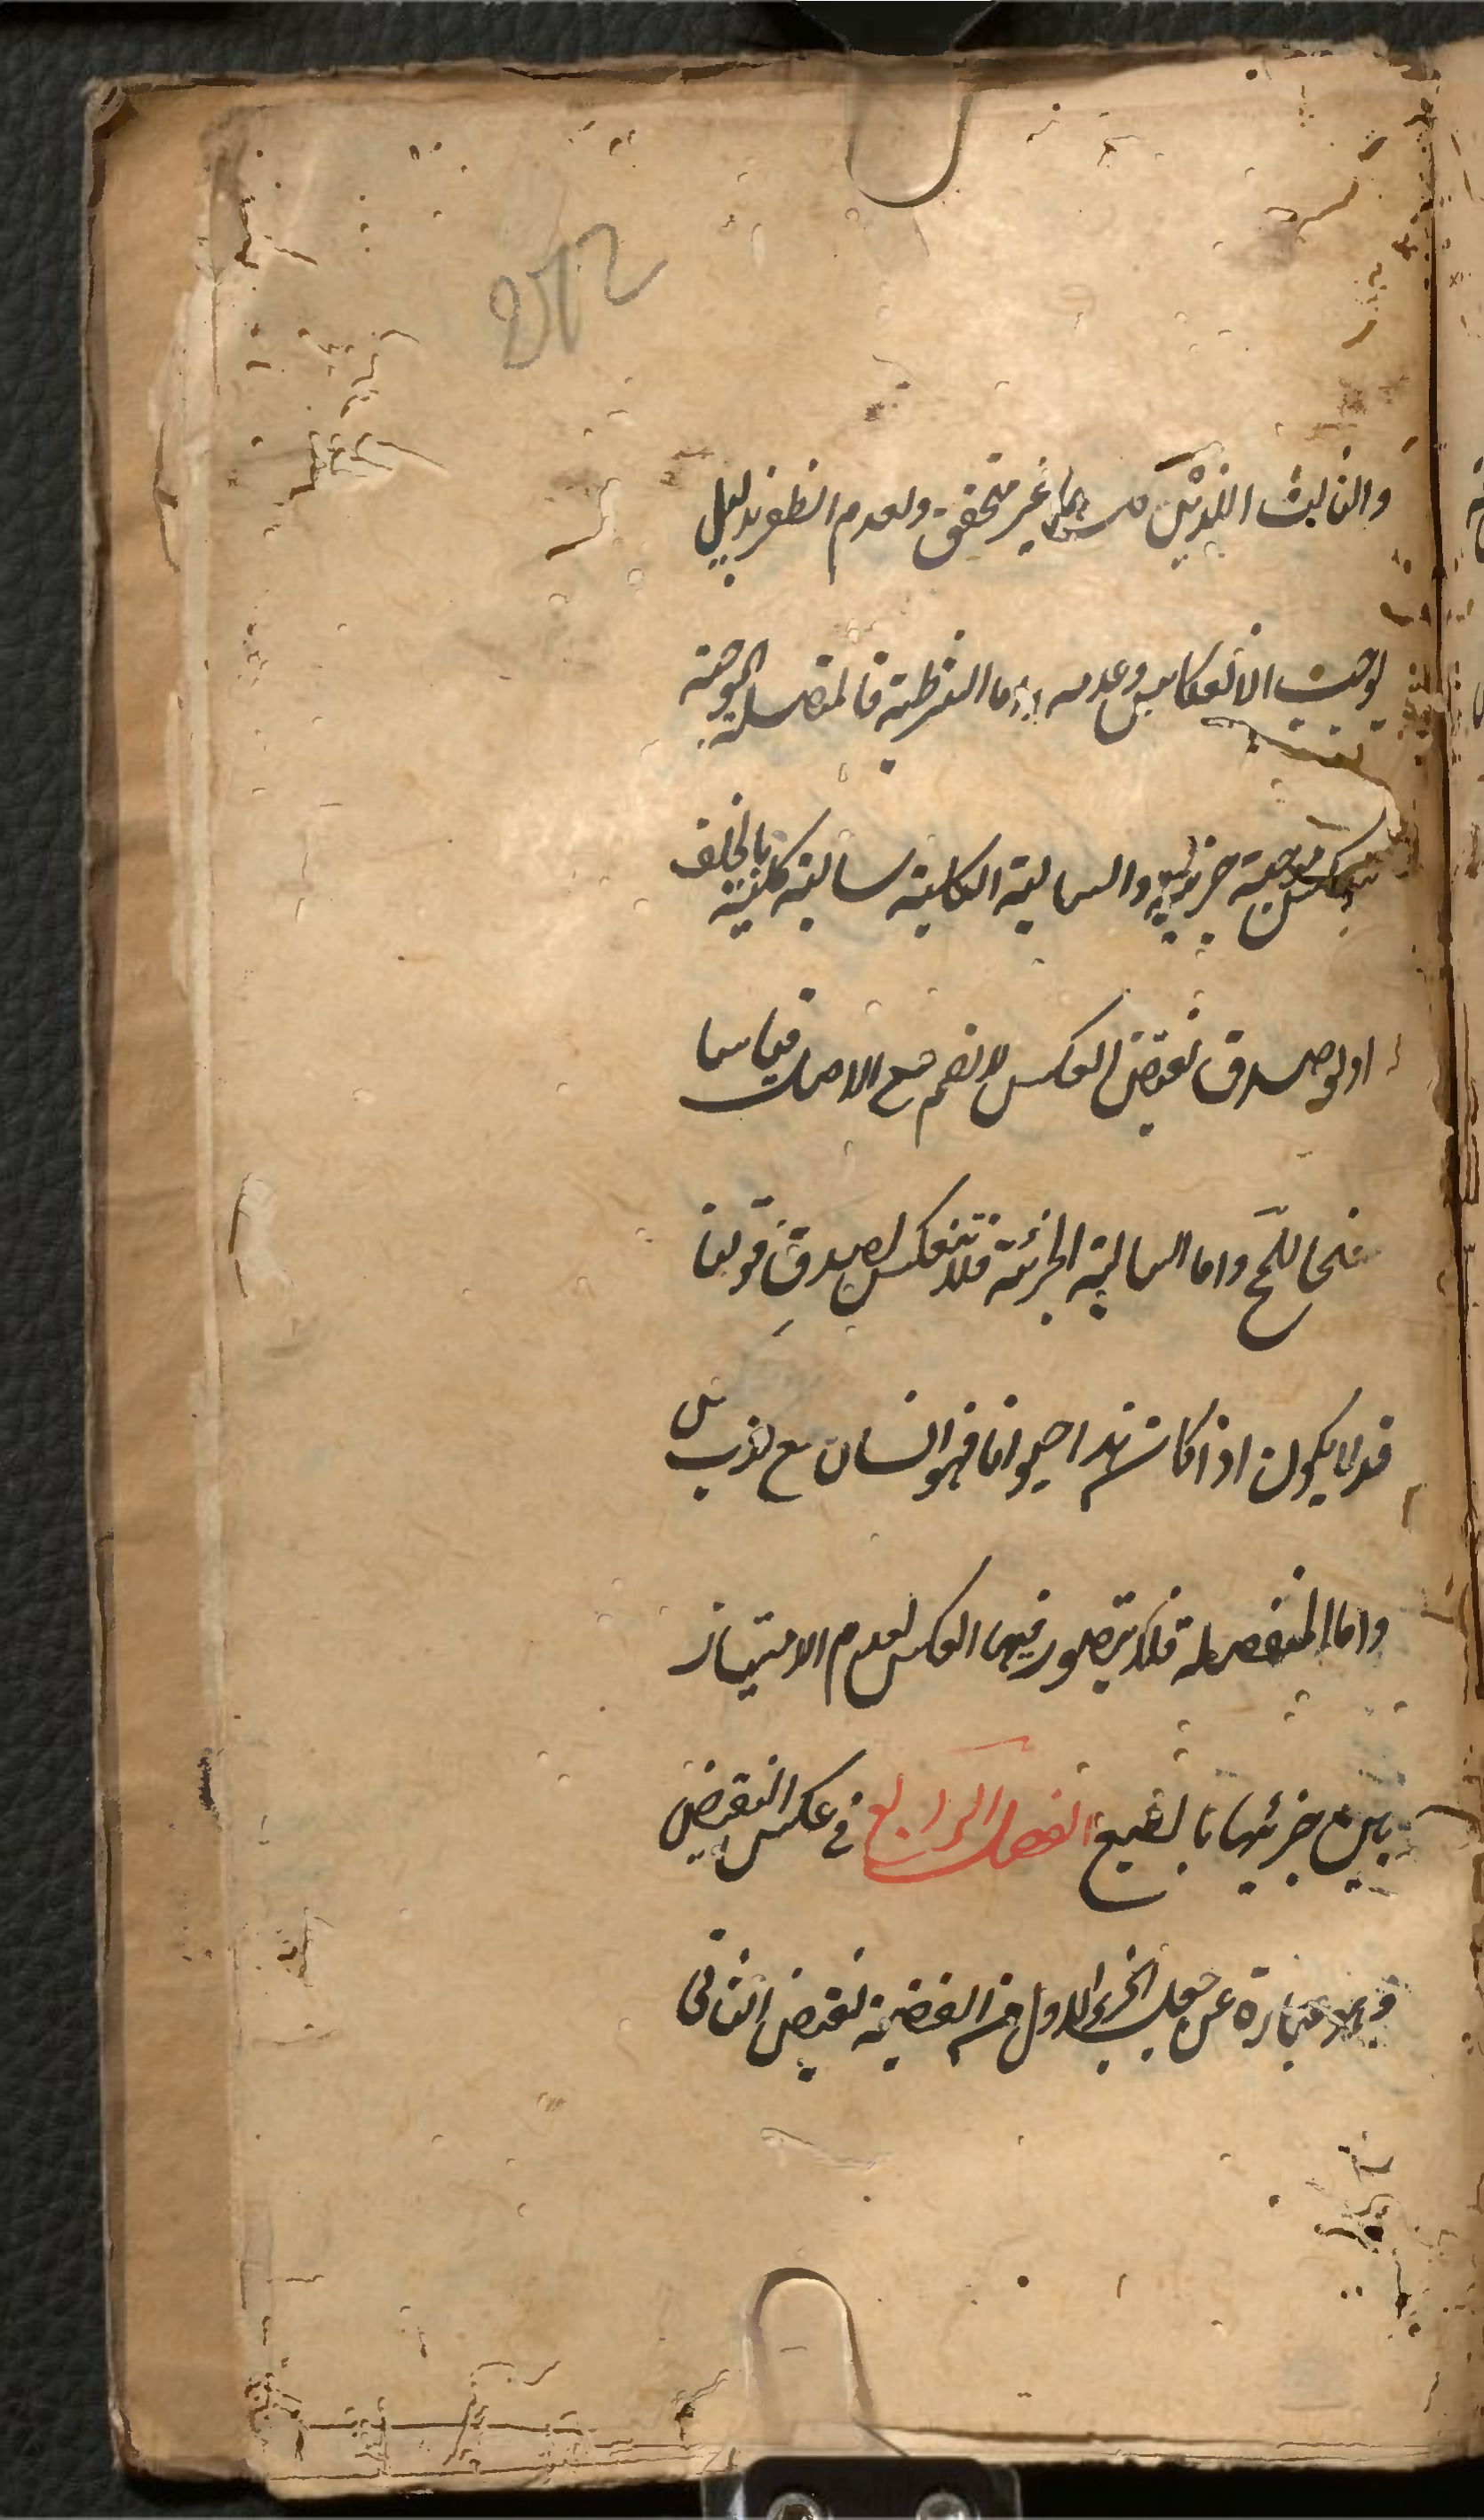 والثالث اللذين كل منهما غير متحقق ولعدم الظفر بدليل
يوجب الانعكاس وعدمه واما الشرطية فالمتصلة الموجبة
تنعكس موجبة جزئية والسالبة الكلية سالبة كلية بالخلف
اذ لو صدق نقيض العكس لانضم مع الاصل قياسا
منتجا للمح واما السالبة الجزئية فلا تنعكس لصدق قولنا
قد لا يكون اذا كان هذا حيوانا فهو انسان مع كذب
واما المنفصلة فلا يتصور فيها العكس لعدم الامتياز
بين جزئيها بالطبع الفصل الرابع في عكس النقيض
وهو عبارة عن جعل الجزء الاول من القضية نقيض الثاني